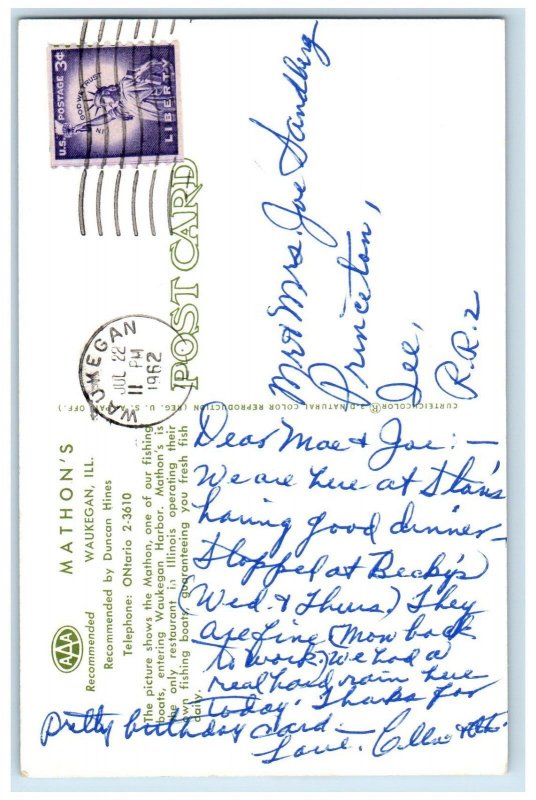 U.S. POSTAGE 3¢
IN GOD WE TRUST
LIBERTY
WAUKEGAN
JUL 22
11 PM
1962
POST CARD
Mr & Mrs. Joe Sandberg
Princeton,
Ill.
R.R. 2
CURTEICHCOLOR® 3-D NATURAL COLOR REPRODUCTION (REG. U.S.A. PAT. OFF.)
AAA
Recommended
MATHON'S
WAUKEGAN, ILL.
Recommended by Duncan Hines
Telephone: ONtario 2-3610
The picture shows the Mathon, one of our fishing
boats, entering Waukegan Harbor. Mathon's is
the only restaurant in Illinois operating their
own fishing boats guaranteeing you fresh fish
daily.
Dear Mae & Joe: —
We are here at Stan's
having good dinner —
Stopped at Becky's
(Wed. & Thurs.) They
are fine (Mom back
to work.) We had a
real hard rain here
today. Thanks for
pretty birthday card —
Love.